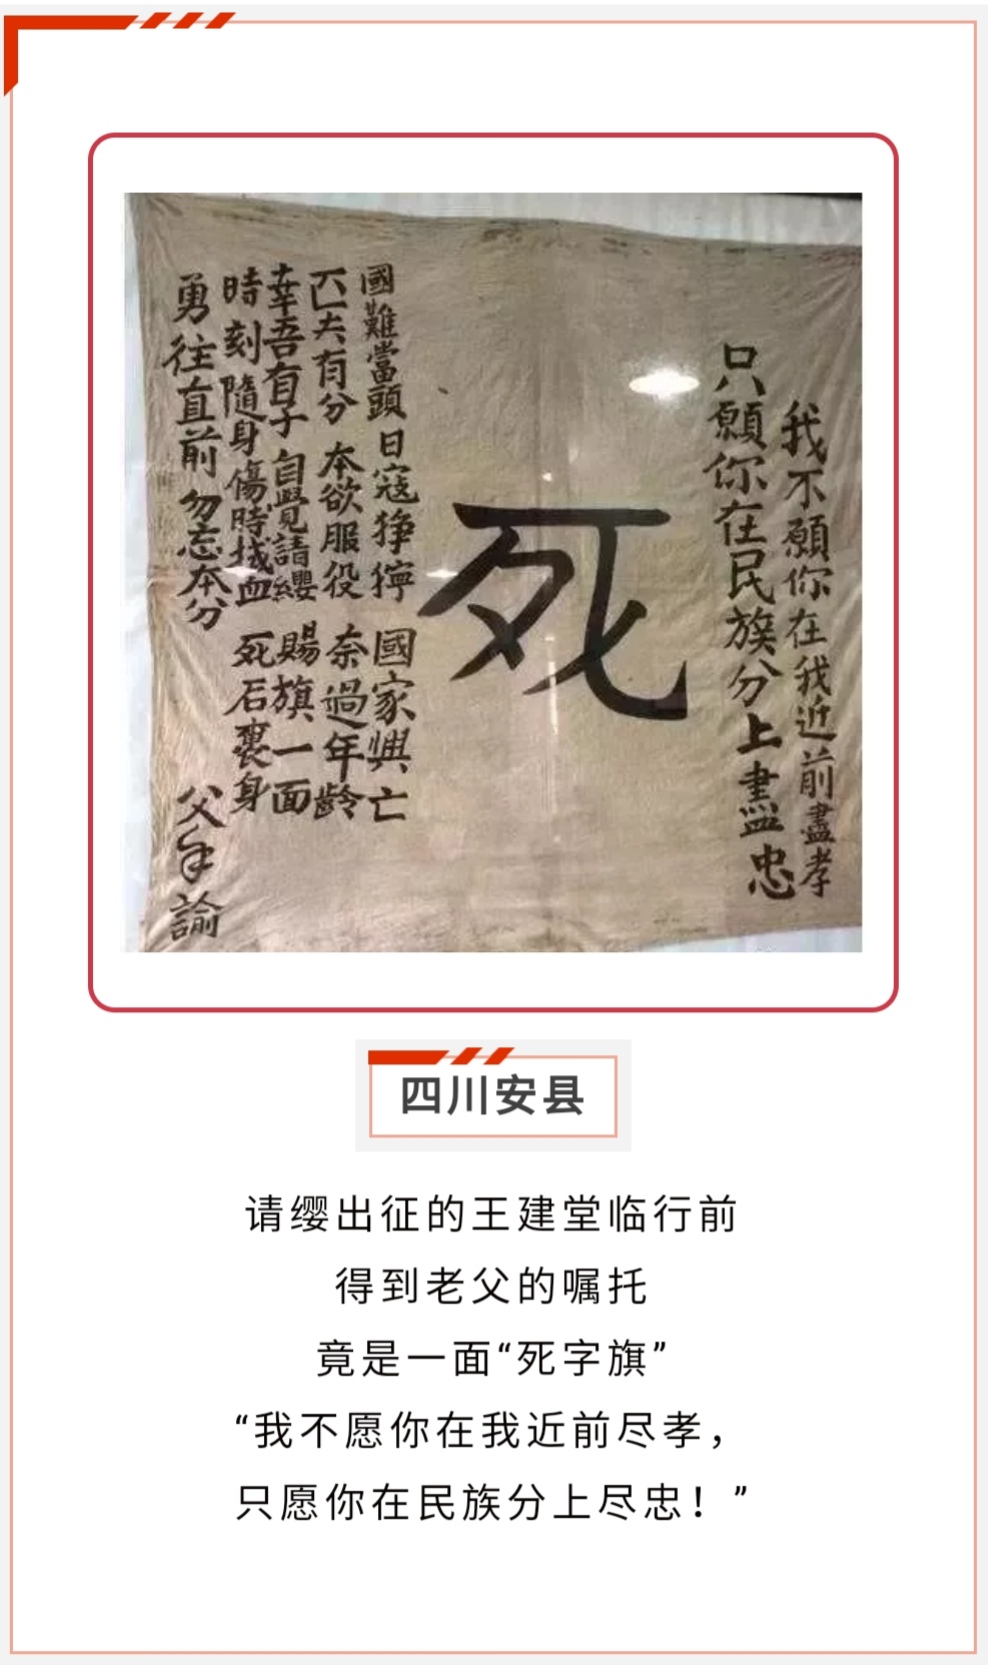 我不願你在我近前盡孝
只願你在民族分上盡忠
死
國難當頭 日寇猙獰 國家興亡
匹夫有分 本欲服役 奈過年齡
幸吾有子 自覺請纓 賜旗一面
時刻隨身 傷時拭血 死后裹身
勇往直前 勿忘本分
父手諭
四川安县
请缨出征的王建堂临行前
得到老父的嘱托
竟是一面“死字旗”
“我不愿你在我近前尽孝，
只愿你在民族分上尽忠！”